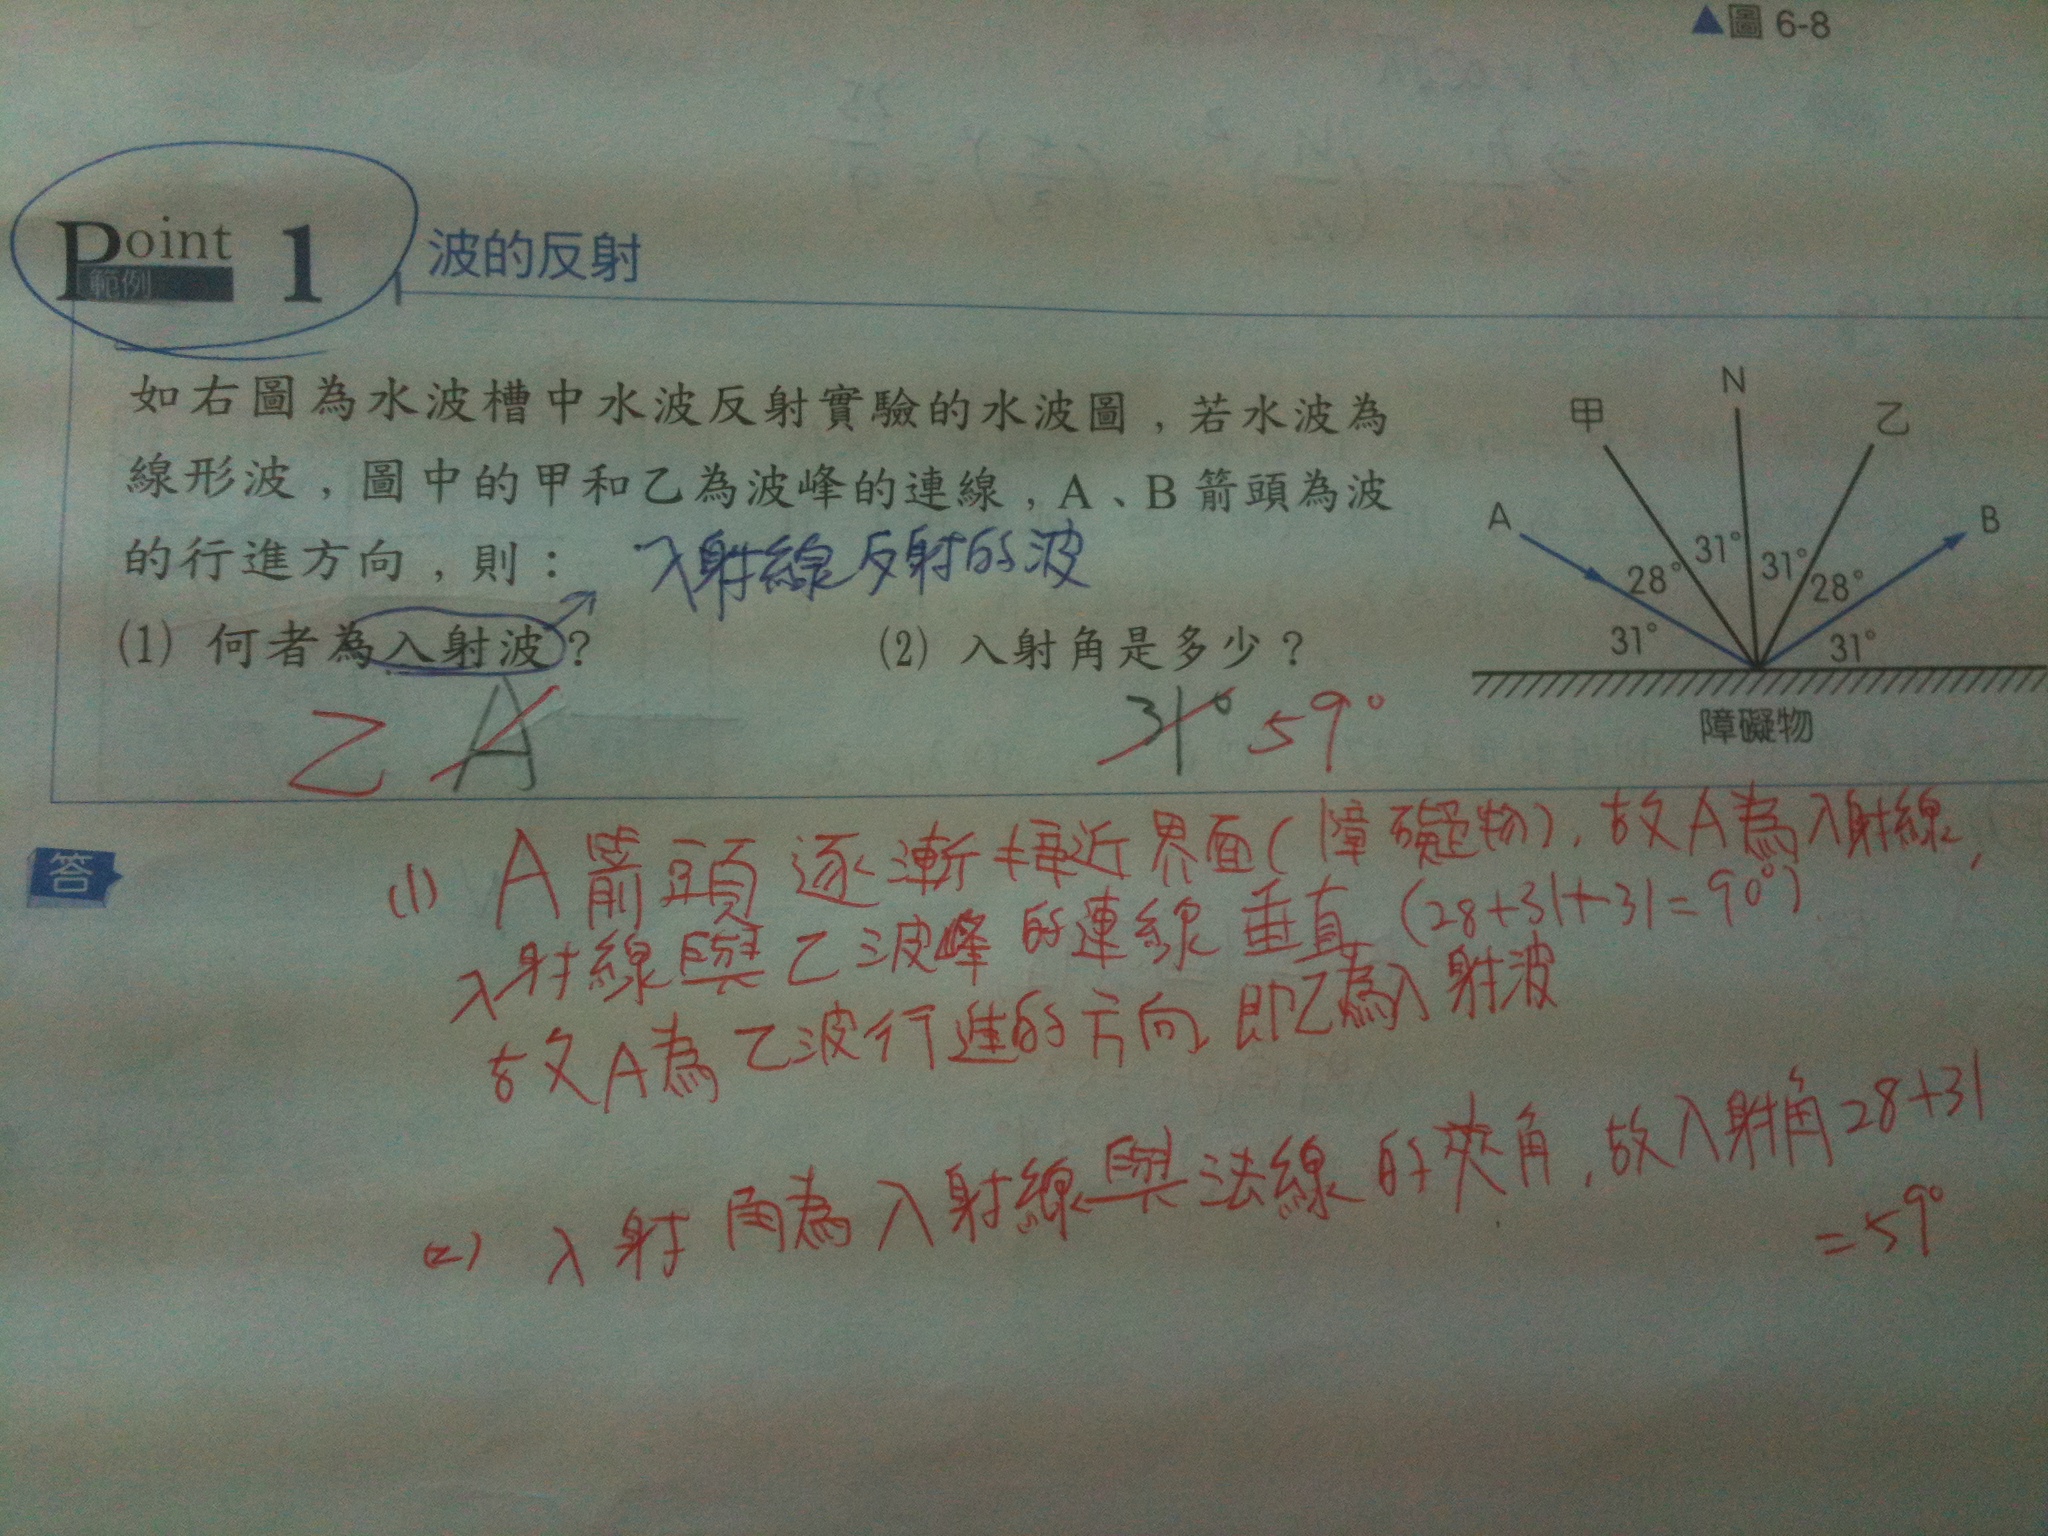 ▲圖 6-8
Point 範例 1 波的反射
如右圖為水波槽中水波反射實驗的水波圖，若水波為
線形波，圖中的甲和乙為波峰的連線，A、B 箭頭為波
的行進方向，則： 入射線反射的波
(1) 何者為入射波？ (2) 入射角是多少？
乙 A 31° 59°
N
甲 乙
A B
31° 31°
28° 28°
31° 31°
障礙物
答
(1) A箭頭逐漸接近界面(障礙物)，故A為入射線，
入射線與乙波峰的連線垂直 (28+31+31=90°)
故A為乙波行進的方向，即乙為入射波
(2) 入射角為入射線與法線的夾角，故入射角28+31
=59°